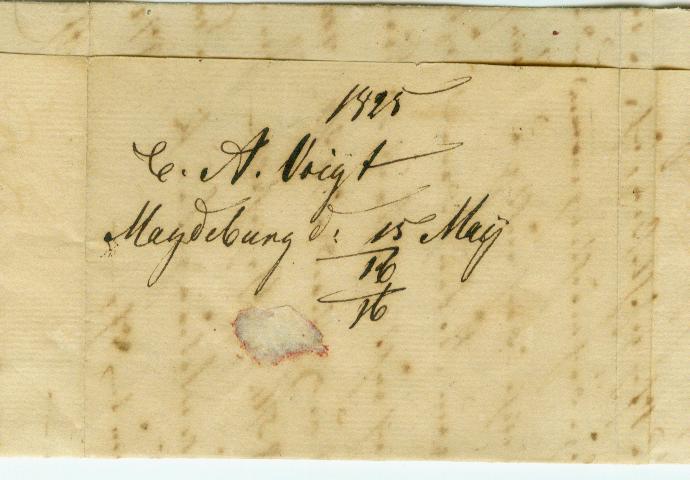 1825
C. A. Voigt
Magdeburg d: 15 May
16
16